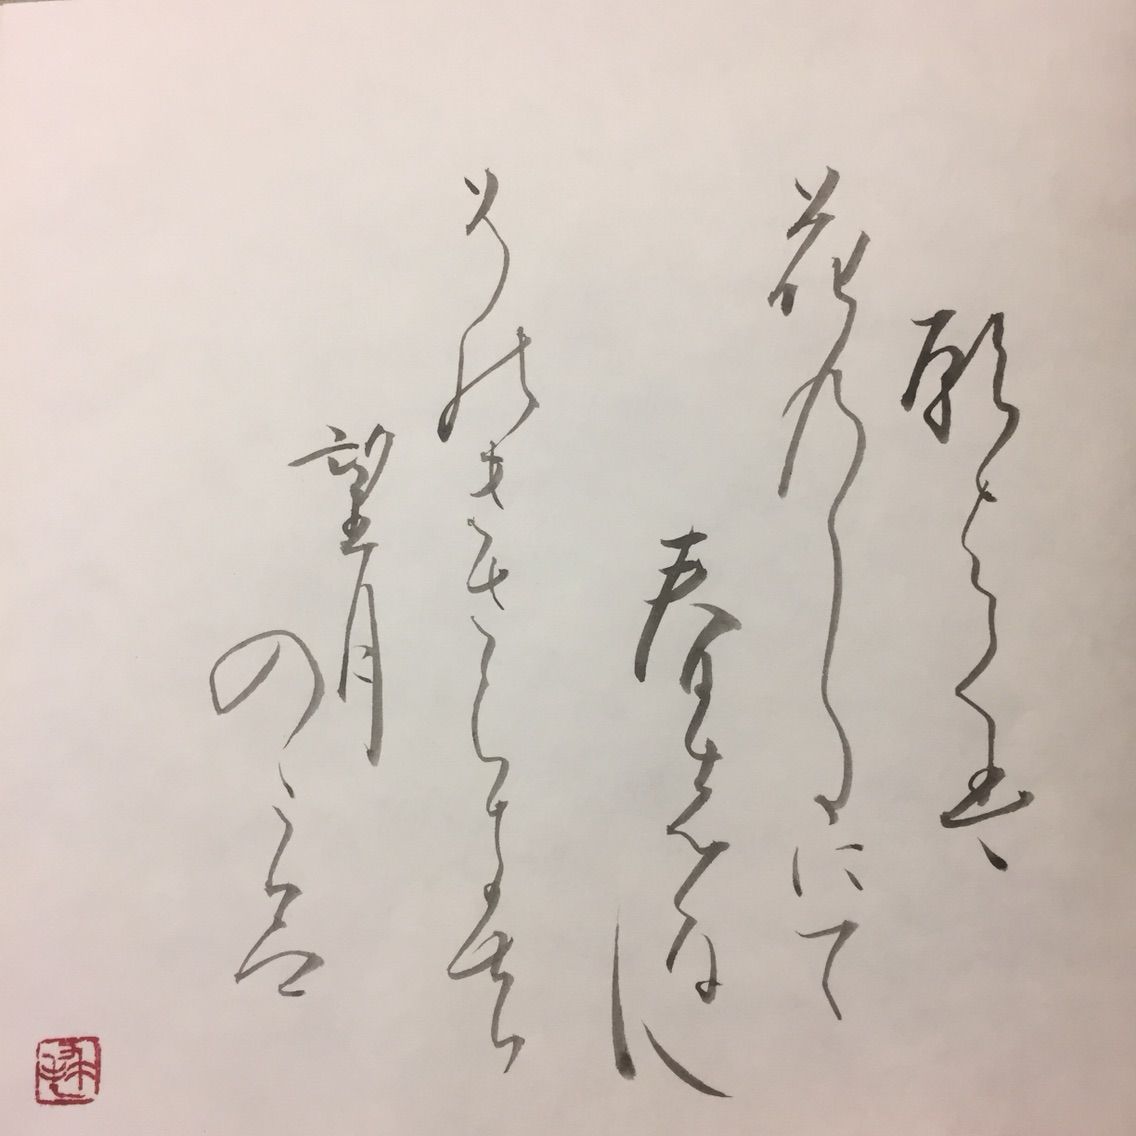 願はくは
花のしたにて
春しなん
そのきさらきの
望月
のころ